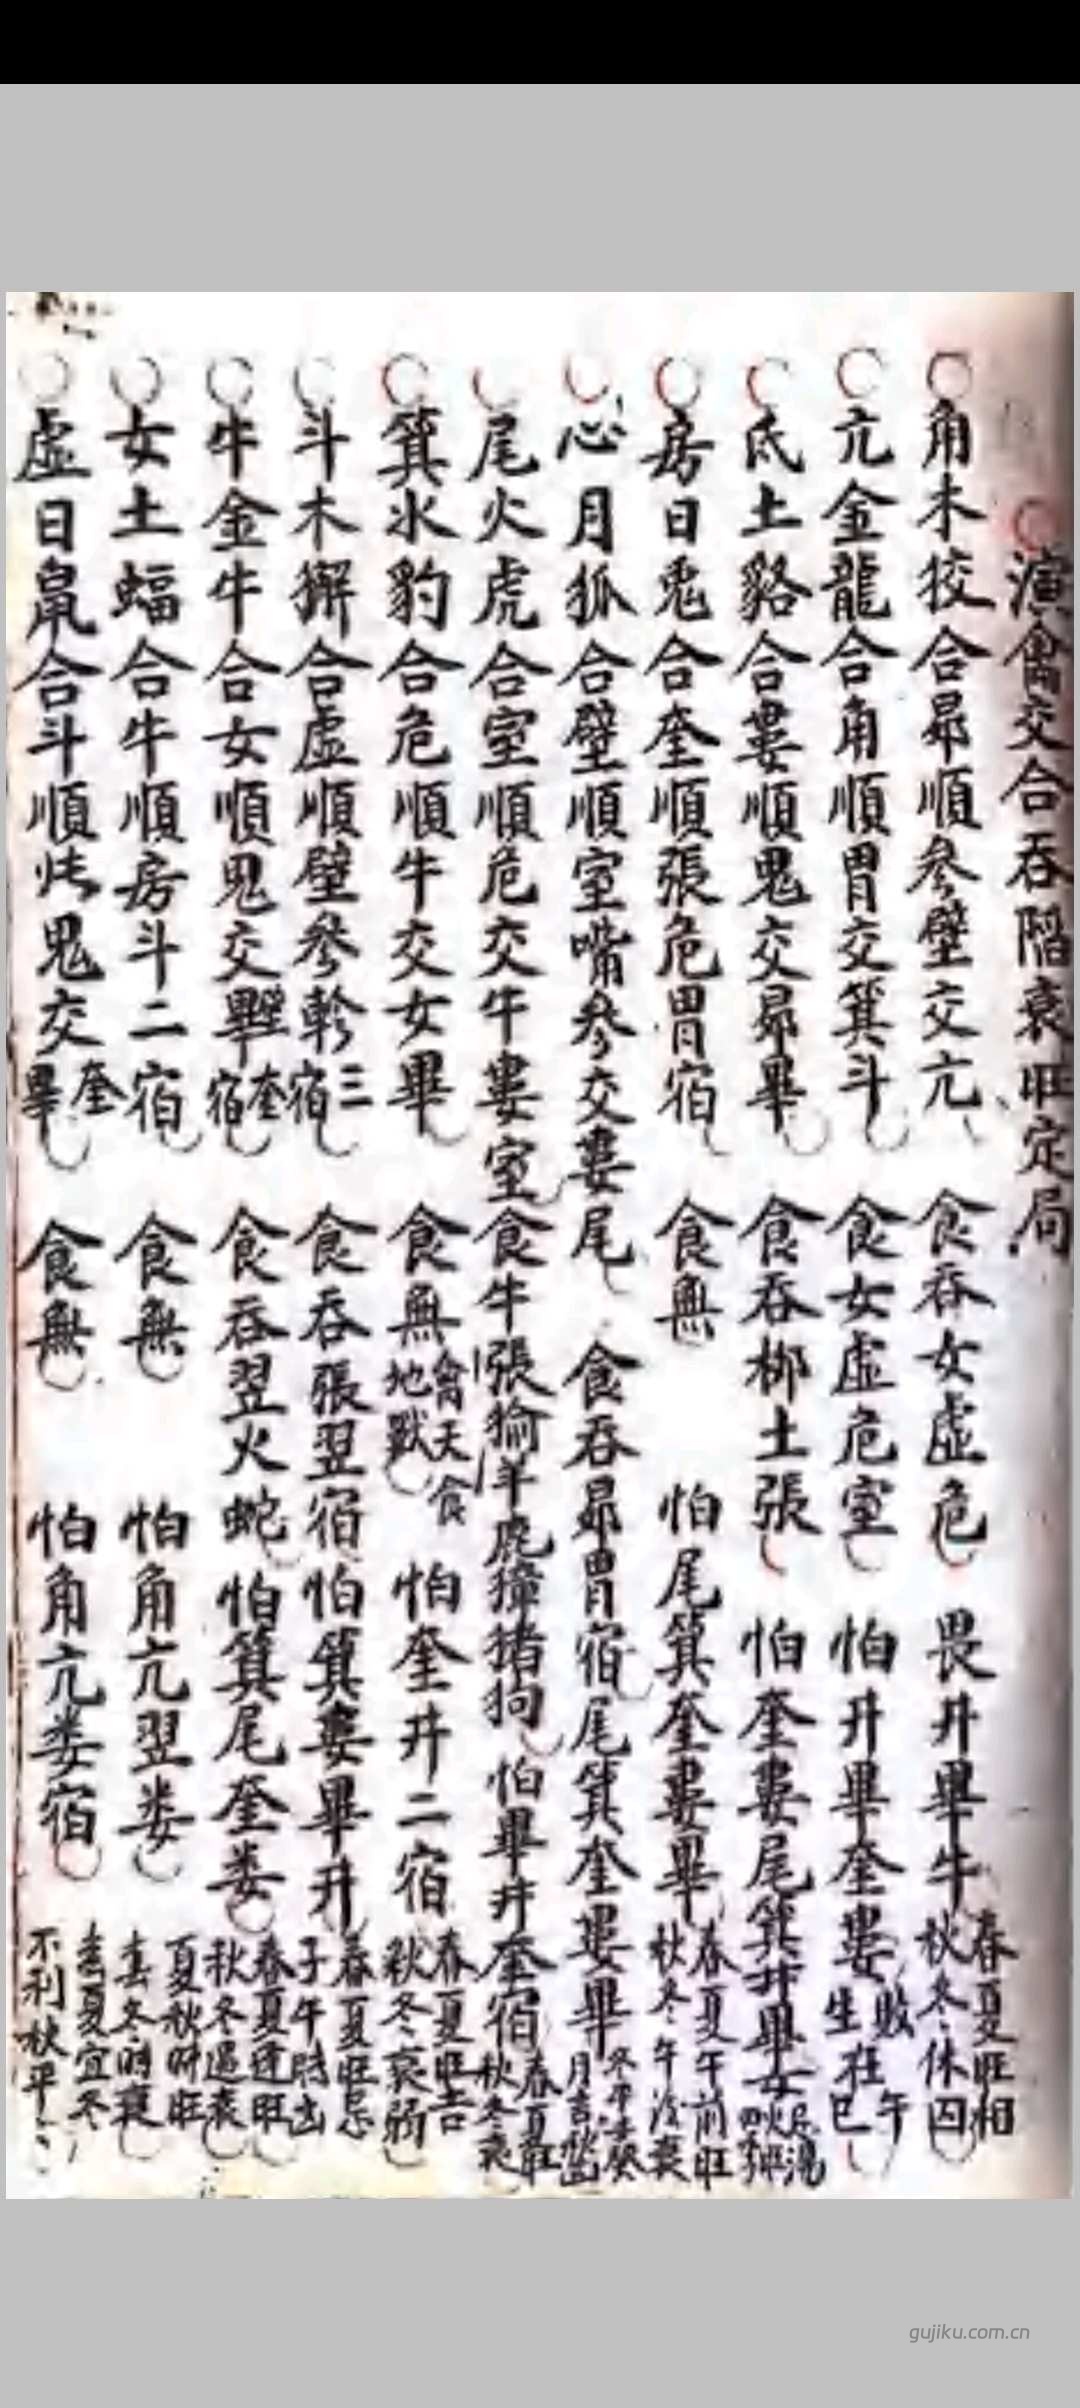 演禽交合吞陷衰旺定局
角木狡合昴順參壁交亢 食吞女虛危 畏井畢牛 春夏旺相 秋冬休囚
亢金龍合角順胃交箕斗 食女虛危室 怕井畢奎婁 敗午 生在巳
氐土貉合婁順鬼交昴畢 食吞柳土張 怕奎婁尾箕井畢女
房日兎合奎順張危胃宿 食無 怕尾箕奎婁畢 春夏午前旺 秋冬午後衰
心月狐合壁順室嘴參交婁尾 食吞昴胃宿尾箕奎婁畢
尾火虎合室順危交牛婁室 食牛張㺄羊鹿獐猪狗 怕畢井奎宿 春夏旺 秋冬衰
箕水豹合危順牛交女畢 食無 禽天食地獸 怕奎井二宿 春夏旺吉 秋冬衰弱
斗木獬合虛順壁參軫三宿 食吞張翌宿 怕箕婁畢井 春夏旺忌子午時出
牛金牛合女順鬼交畢壁奎宿 食吞翌火蛇 怕箕尾奎娄 春夏進旺 秋冬退衰
女土蝠合牛順房斗二宿 食無 怕角亢翌娄 夏秋時旺 去冬時衰
虛日鼠合斗順鬼交奎畢 食無 怕角亢娄宿 夏宜冬 不利秋平
gujiku.com.cn